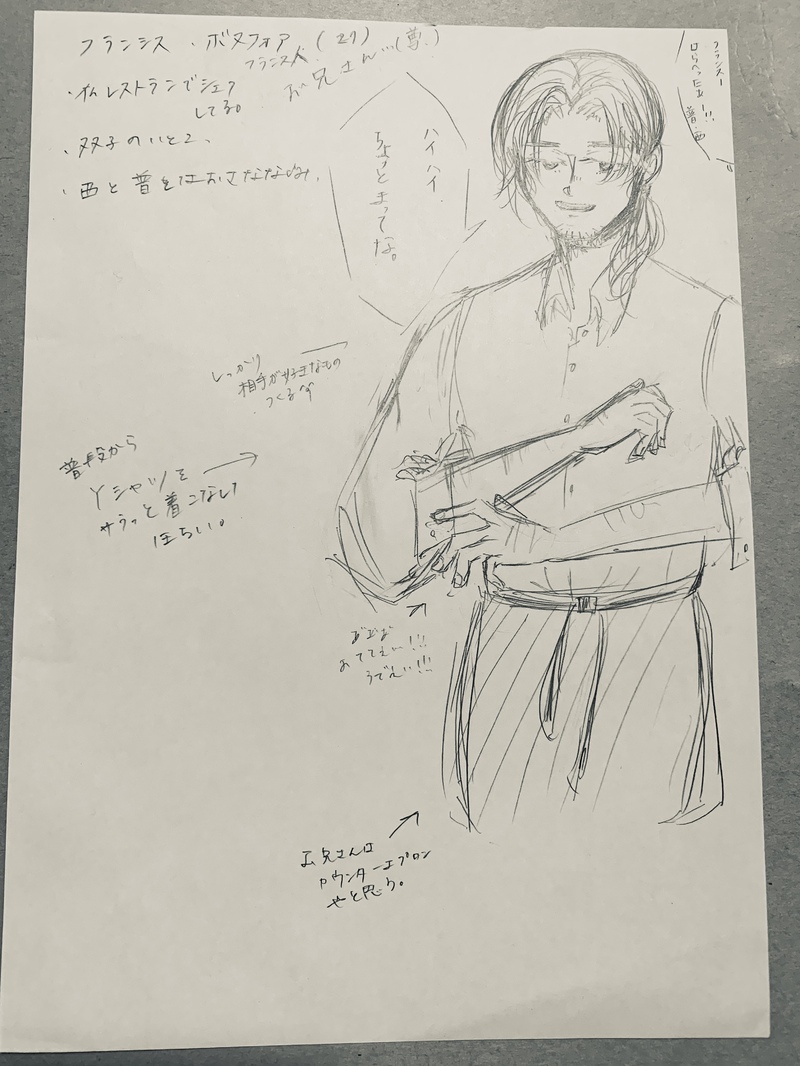 フランシス・ボヌフォア (27)
フランス人
お兄さん…(尊.)
・仏レストランでシェフ
してる。
・双子のいとこ、
・西と普とはおさななじみ.
ハイハイ
ちょっとまってな。
フランスー
はらへったぁー!!
普西
しっかり
相手が好きなもの
つくるや
普段から
Yシャツを
サラっと着こなして
ほらい。
あててえい!!!
うでえい!!!
お兄さんは
カウンターエプロン
やと思う。